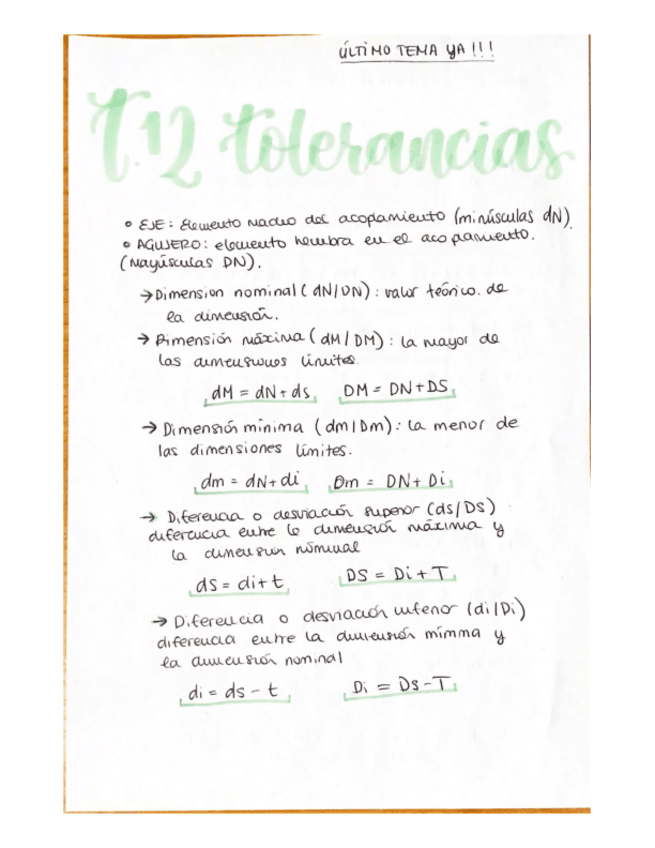 ÚLTIMO TEMA YA!!!
t.12 tolerancias
• EJE: Elemento macho del acoplamiento (minúsculas dN).
• AGUJERO: elemento hembra en el acoplamiento.
(Mayúsculas DN).
→ Dimension nominal (dN/DN): valor teórico de
la dimensión.
→ Dimensión máxima (dM/DM): la mayor de
las dimensiones límites.
dM = dN + ds DM = DN + DS
→ Dimensión mínima (dm/Dm): la menor de
las dimensiones límites.
dm = dN + di Dm = DN + Di
→ Diferencia o desviación superior (ds/DS)
diferencia entre la dimensión máxima y
la dimensión nominal
ds = di + t DS = Di + T
→ Diferencia o desviación inferior (di/Di)
diferencia entre la dimensión mínima y
la dimensión nominal
di = ds - t Di = Ds - T